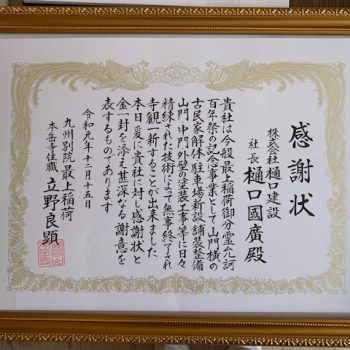 感謝状
株式会社樋口建設
社長 樋口國廣殿
貴社は今般最上稲荷御分霊允許
百年祭の記念事業として山門横の
古民家解体駐車場新設舗装整備
山門中門外壁の塗装工事等に日々
精練された技術によって無事終了され
寺観一新することが出来ました
本日爰に貴社に対し感謝状と
金一封を添え甚深なる謝意を
表するものであります
令和元年十二月十五日
九州別院最上稲荷
本岳寺住職 立野良顕